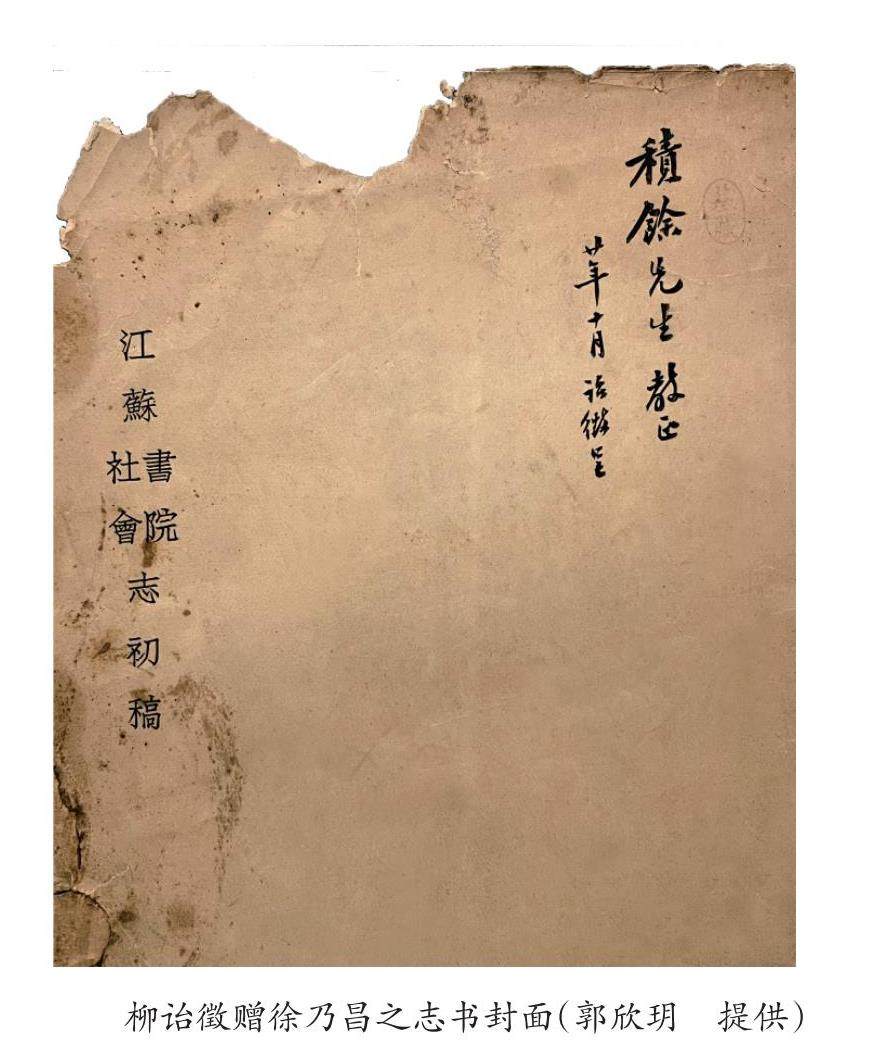 積餘先生 教正
廿年十月 詒徵呈
江蘇書院社會志初稿
柳诒徵赠徐乃昌之志书封面(郭欣玥　提供)